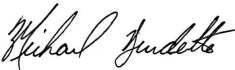 Michael Burdette